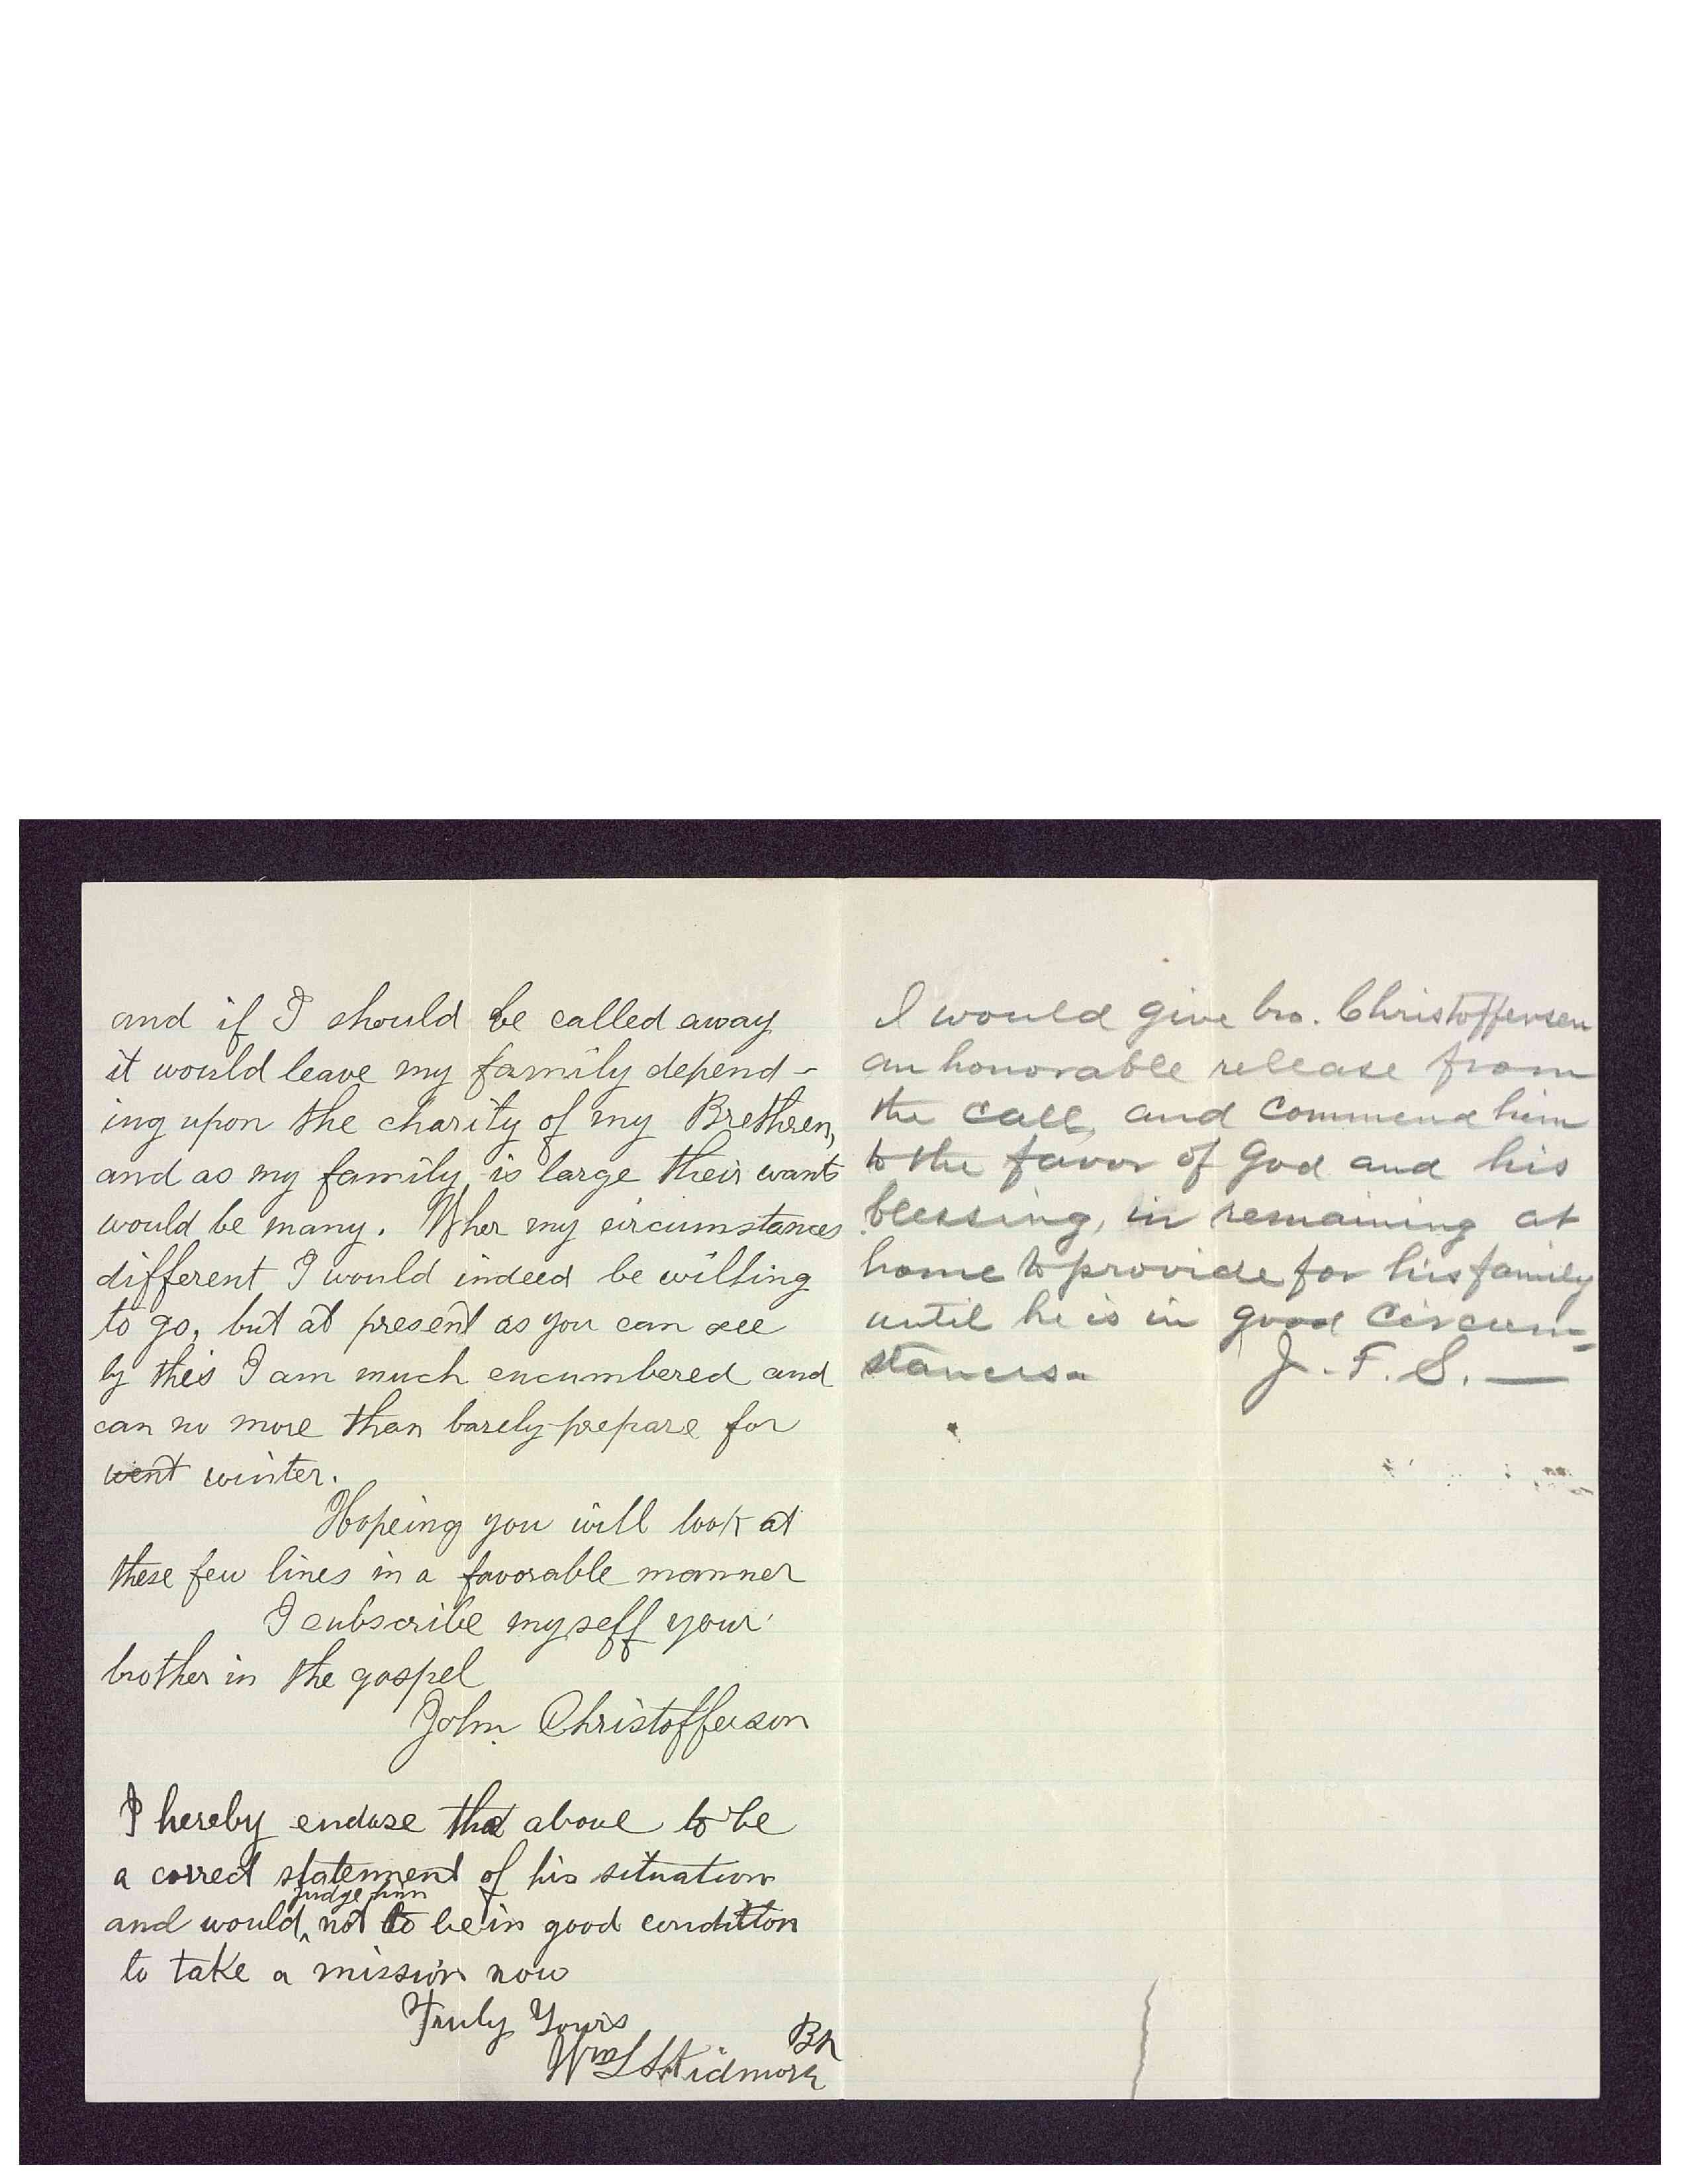 and if I should be called away
it would leave my family depend-
ing upon the charity of my Brethren,
and as my family is large their wants
would be many. Wher my circumstances
different I would indeed be willing
to go, but at present as you can see
by this I am much encumbered and
can no more than barely prepare for
went winter.
Hopeing you will look at
these few lines in a favorable manner
I subscribe myself your
brother in the gospel
John Christofferson
I hereby endose that above to be
a correct statement of his situation
judge him
and would not to be in good condition
to take a mission now
Truly Yours
Wm L Skidmore Bp
I would give bro. Christoffersen
an honorable release from
the call, and commend him
to the favor of God and his
blessing, in remaining at
home to provide for his family
until he is in good circum-
stances. J. F. S.